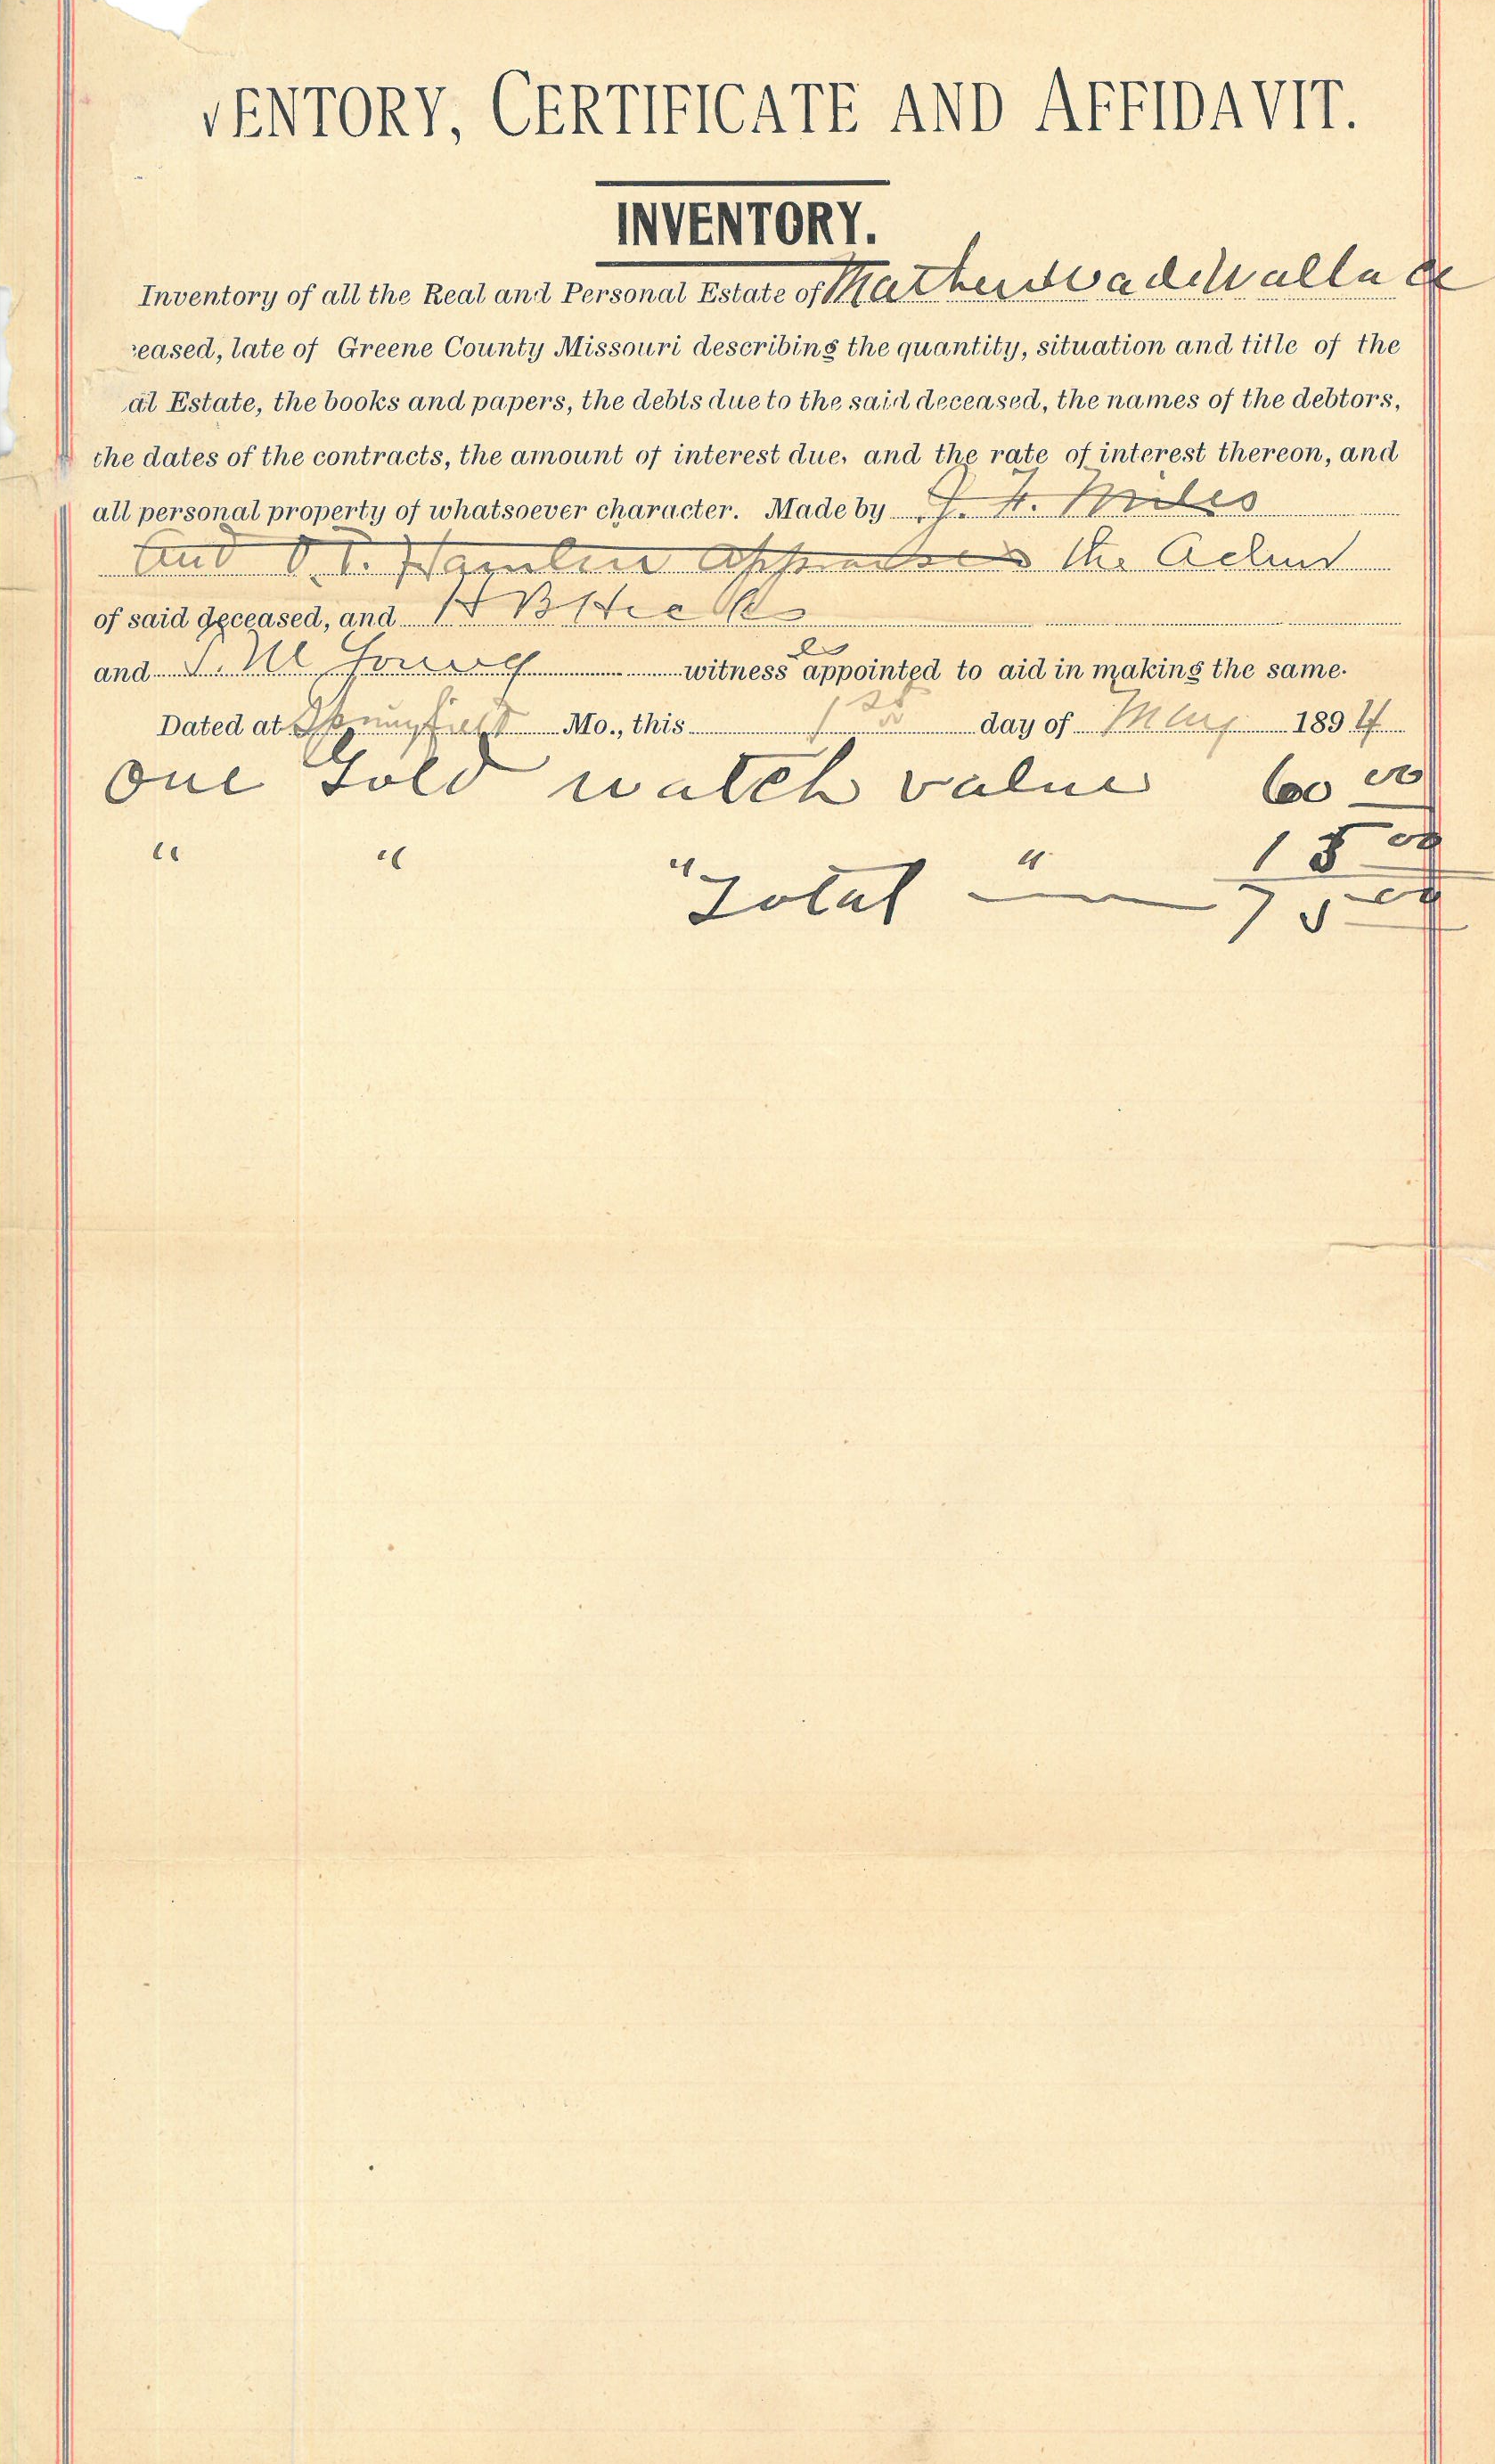 VENTORY, CERTIFICATE AND AFFIDAVIT.
INVENTORY.
Inventory of all the Real and Personal Estate of Wallace
eased, late of Greene County Missouri describing the quantity, situation and title of the
al Estate, the books and papers, the debts due to the said deceased, the names of the debtors,
the dates of the contracts, the amount of interest due, and the rate of interest thereon, and
all personal property of whatsoever character. Made by Miles
and O. T. Hamlin Appraisers the Admr
of said deceased, and H B Hicks
and witness es appointed to aid in making the same.
Dated at Springfield Mo., this day of May 1894
One Gold watch value 60 00
" " " " 15 00
Total 75 00